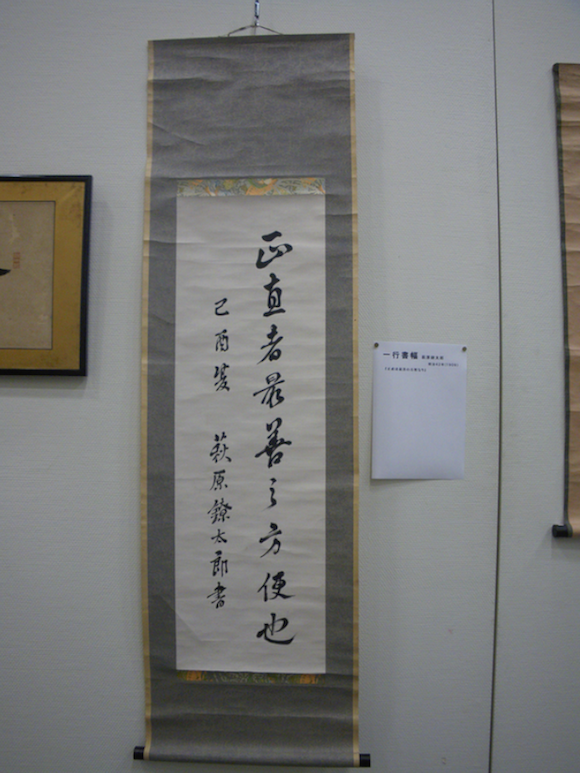 正直者最善之方便也
己酉夏 萩原鐐太郎書
一行書幅 萩原鐐太郎